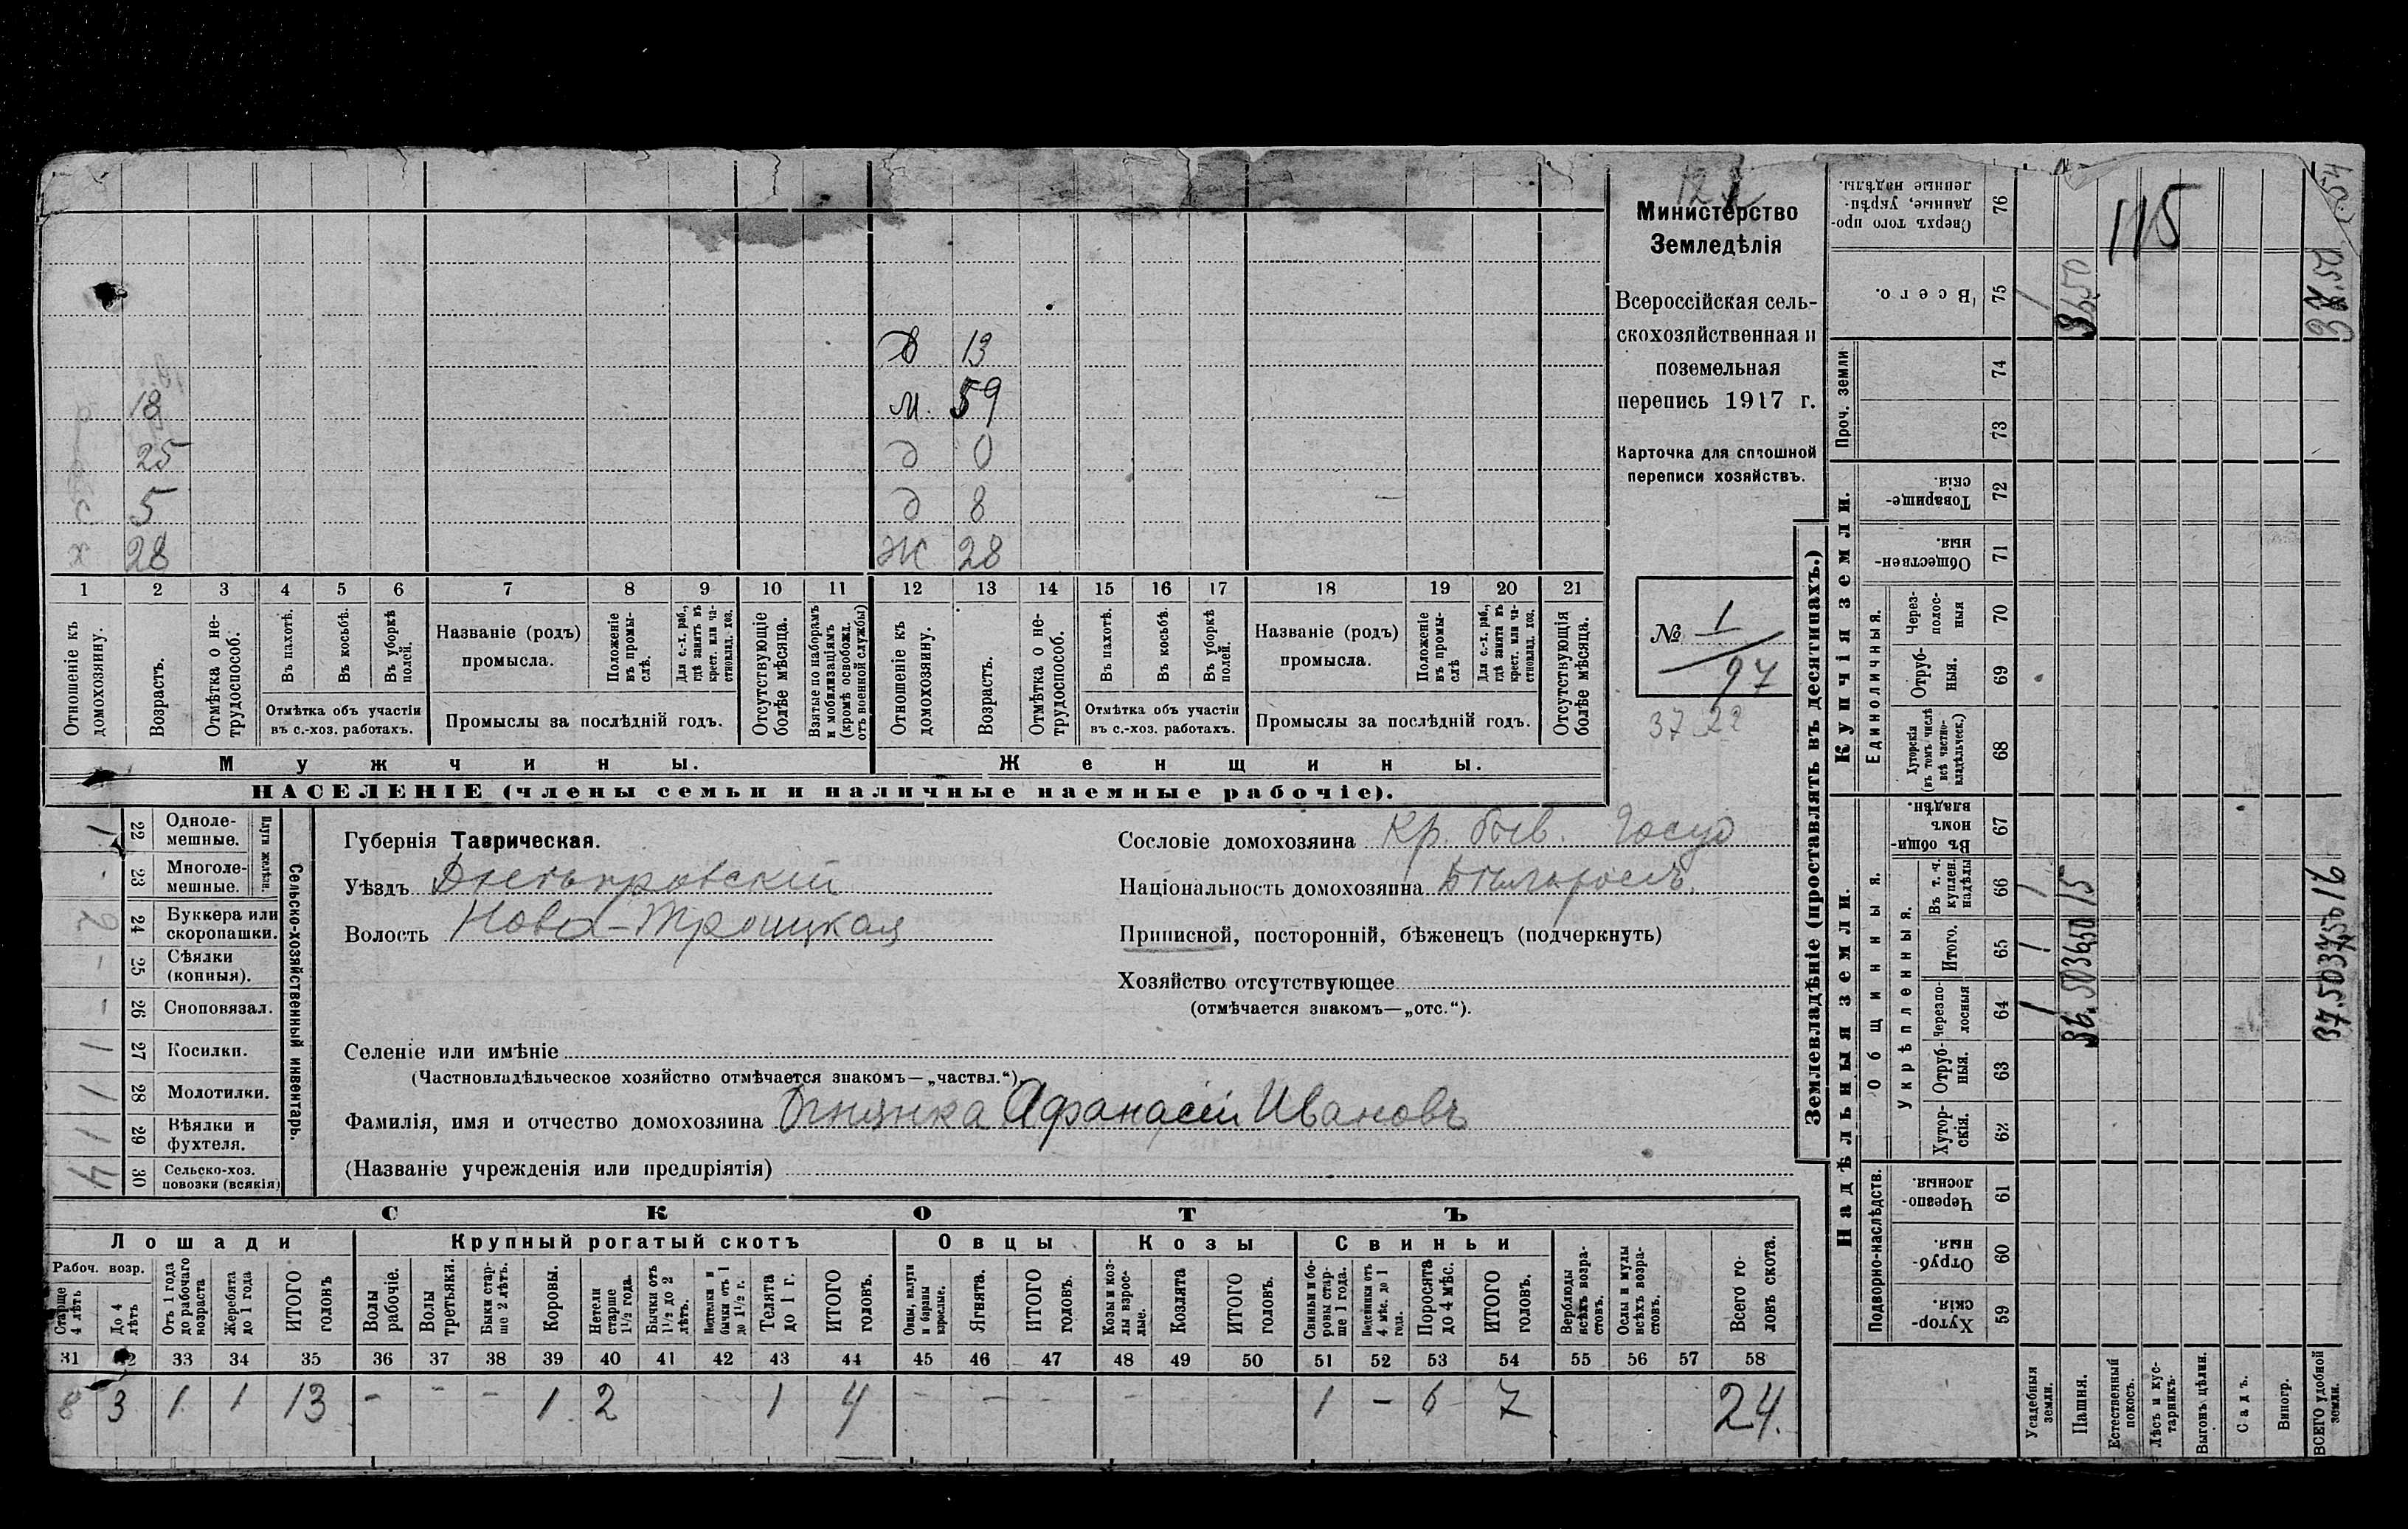 115
Министерство
Земледѣлія
Всероссійская сель-
скохозяйственная и
поземельная
перепись 1917 г.
Карточка для сплошной
переписи хозяйствъ.
№ 1
97
37.22
Д 13
18 М. 59
25 д 0
с 5 д 8
х 28 Ж 28
1 2 3 4 5 6 7 8 9 10 11 12 13 14 15 16 17 18 19 20 21
Отношеніе къ домохозяину.
Возрастъ.
Отмѣтка о не-трудоспособ.
Въ пахотѣ.
Въ косьбѣ.
Въ уборкѣ полей.
Отмѣтка объ участіи
въ с.-хоз. работахъ.
Названіе (родъ)
промысла.
Положеніе въ промы-слѣ.
Для с.-х. раб., гдѣ занятъ въ крест. или ча-стновлад. хоз.
Промыслы за послѣдній годъ.
Отсутствующіе болѣе мѣсяца.
Взятые по наборамъ и мобилизаціямъ (кромѣ освобожд. отъ военной службы)
Отношеніе къ домохозяину.
Возрастъ.
Отмѣтка о не-трудоспособ.
Въ пахотѣ.
Въ косьбѣ.
Въ уборкѣ полей.
Отмѣтка объ участіи
въ с.-хоз. работахъ.
Названіе (родъ)
промысла.
Положеніе въ промы-слѣ
Для с.-х. раб., гдѣ занята въ крест. или ча-стновлад. хоз.
Промыслы за послѣдній годъ.
Отсутствующія болѣе мѣсяца.
Мужчины. Женщины.
НАСЕЛЕНІЕ (члены семьи и наличные наемные рабочіе).
Сельско-хозяйственный инвентарь.
Плуги желѣзн.
1 22 Одноле-мешные.
- 23 Многоле-мешные.
2 24 Буккера или скоропашки.
- 25 Сѣялки (конныя).
26 Сноповязал.
1 27 Косилки.
1 28 Молотилки.
1 29 Вѣялки и фухтеля.
4 30 Сельско-хоз. повозки (всякія)
Губернія Таврическая.
Уѣздъ Днепровскій
Волость Ново-Троицкая
Сословіе домохозяина Кр. быв. Госуд
Національность домохозяина
Приписной, посторонній, бѣженецъ (подчеркнуть)
Хозяйство отсутствующее
(отмѣчается знакомъ—„отс.“).
Селеніе или имѣніе
(Частновладѣльческое хозяйство отмѣчается знакомъ—„частвл.“)
Фамилія, имя и отчество домохозяина Афанасій Ивановъ
(Названіе учрежденія или предпріятія)
СКОТЪ
Лошади Крупный рогатый скотъ Овцы Козы Свиньи
Рабоч. возр.
Старше 4 лѣтъ
До 4 лѣтъ
Отъ 1 года до рабочаго возраста
Жеребята до 1 года
ИТОГО головъ
Волы рабочіе.
Волы третьяки.
Быки стар-ше 2 лѣтъ.
Коровы.
Нетели старше 1½ года.
Бычки отъ 1½ до 2 лѣтъ.
Подтелки и бычки отъ 1 до 1½ г.
Телята до 1 г.
ИТОГО головъ.
Овцы, валухи и бараны взрослые.
Ягнята.
ИТОГО головъ.
Козы и коз-лы взрос-лые.
Козлята
ИТОГО головъ.
Свиньи и бо-ровы стар-ше 1 года.
Подсвинки отъ 4 мѣс. до 1 года.
Поросята до 4 мѣс.
ИТОГО головъ.
Верблюды всѣхъ возра-стовъ.
Ослы и мулы всѣхъ возра-стовъ.
Всего го-ловъ скота.
31 32 33 34 35 36 37 38 39 40 41 42 43 44 45 46 47 48 49 50 51 52 53 54 55 56 57 58
8 3 1 1 13 - - - 1 2 - 1 4 - - - - - 1 - 6 7 24.
Землевладѣніе (проставлять въ десятинахъ.)
Надѣльныя земли. Купчія земли. Проч. земли
Подворно-наслѣдств. Общинныя. Единоличныя.
Укрѣпленныя.
Хутор-скія. 59
Отруб-ныя. 60
Черезпо-лосныя 61
Хутор-скія. 62
Отруб-ныя. 63
Черезпо-лосныя 64
Итого. 65
Въ т. ч. куплен. надѣлы 66
Въ общи-номъ владѣн. 67
Хуторскія (въ томъ числѣ всѣ частно-владѣльческ.) 68
Отруб-ныя. 69
Через-полос-ныя 70
Обществен-ныя. 71
Товарище-скія. 72
73
74
Всего. 75
Сверхъ того про-данные, укрѣп-ленные надѣлы. 76
Усадебныя земли. 1 1 1 1
Пашня. 36.50 36.50 15 36.50
Естественный покосъ.
Лѣсъ и кус-тарникъ.
Выгонъ цѣлин.
Садъ.
Виногр.
ВСЕГО удобной земли. 37.50 37.50 16 37.50